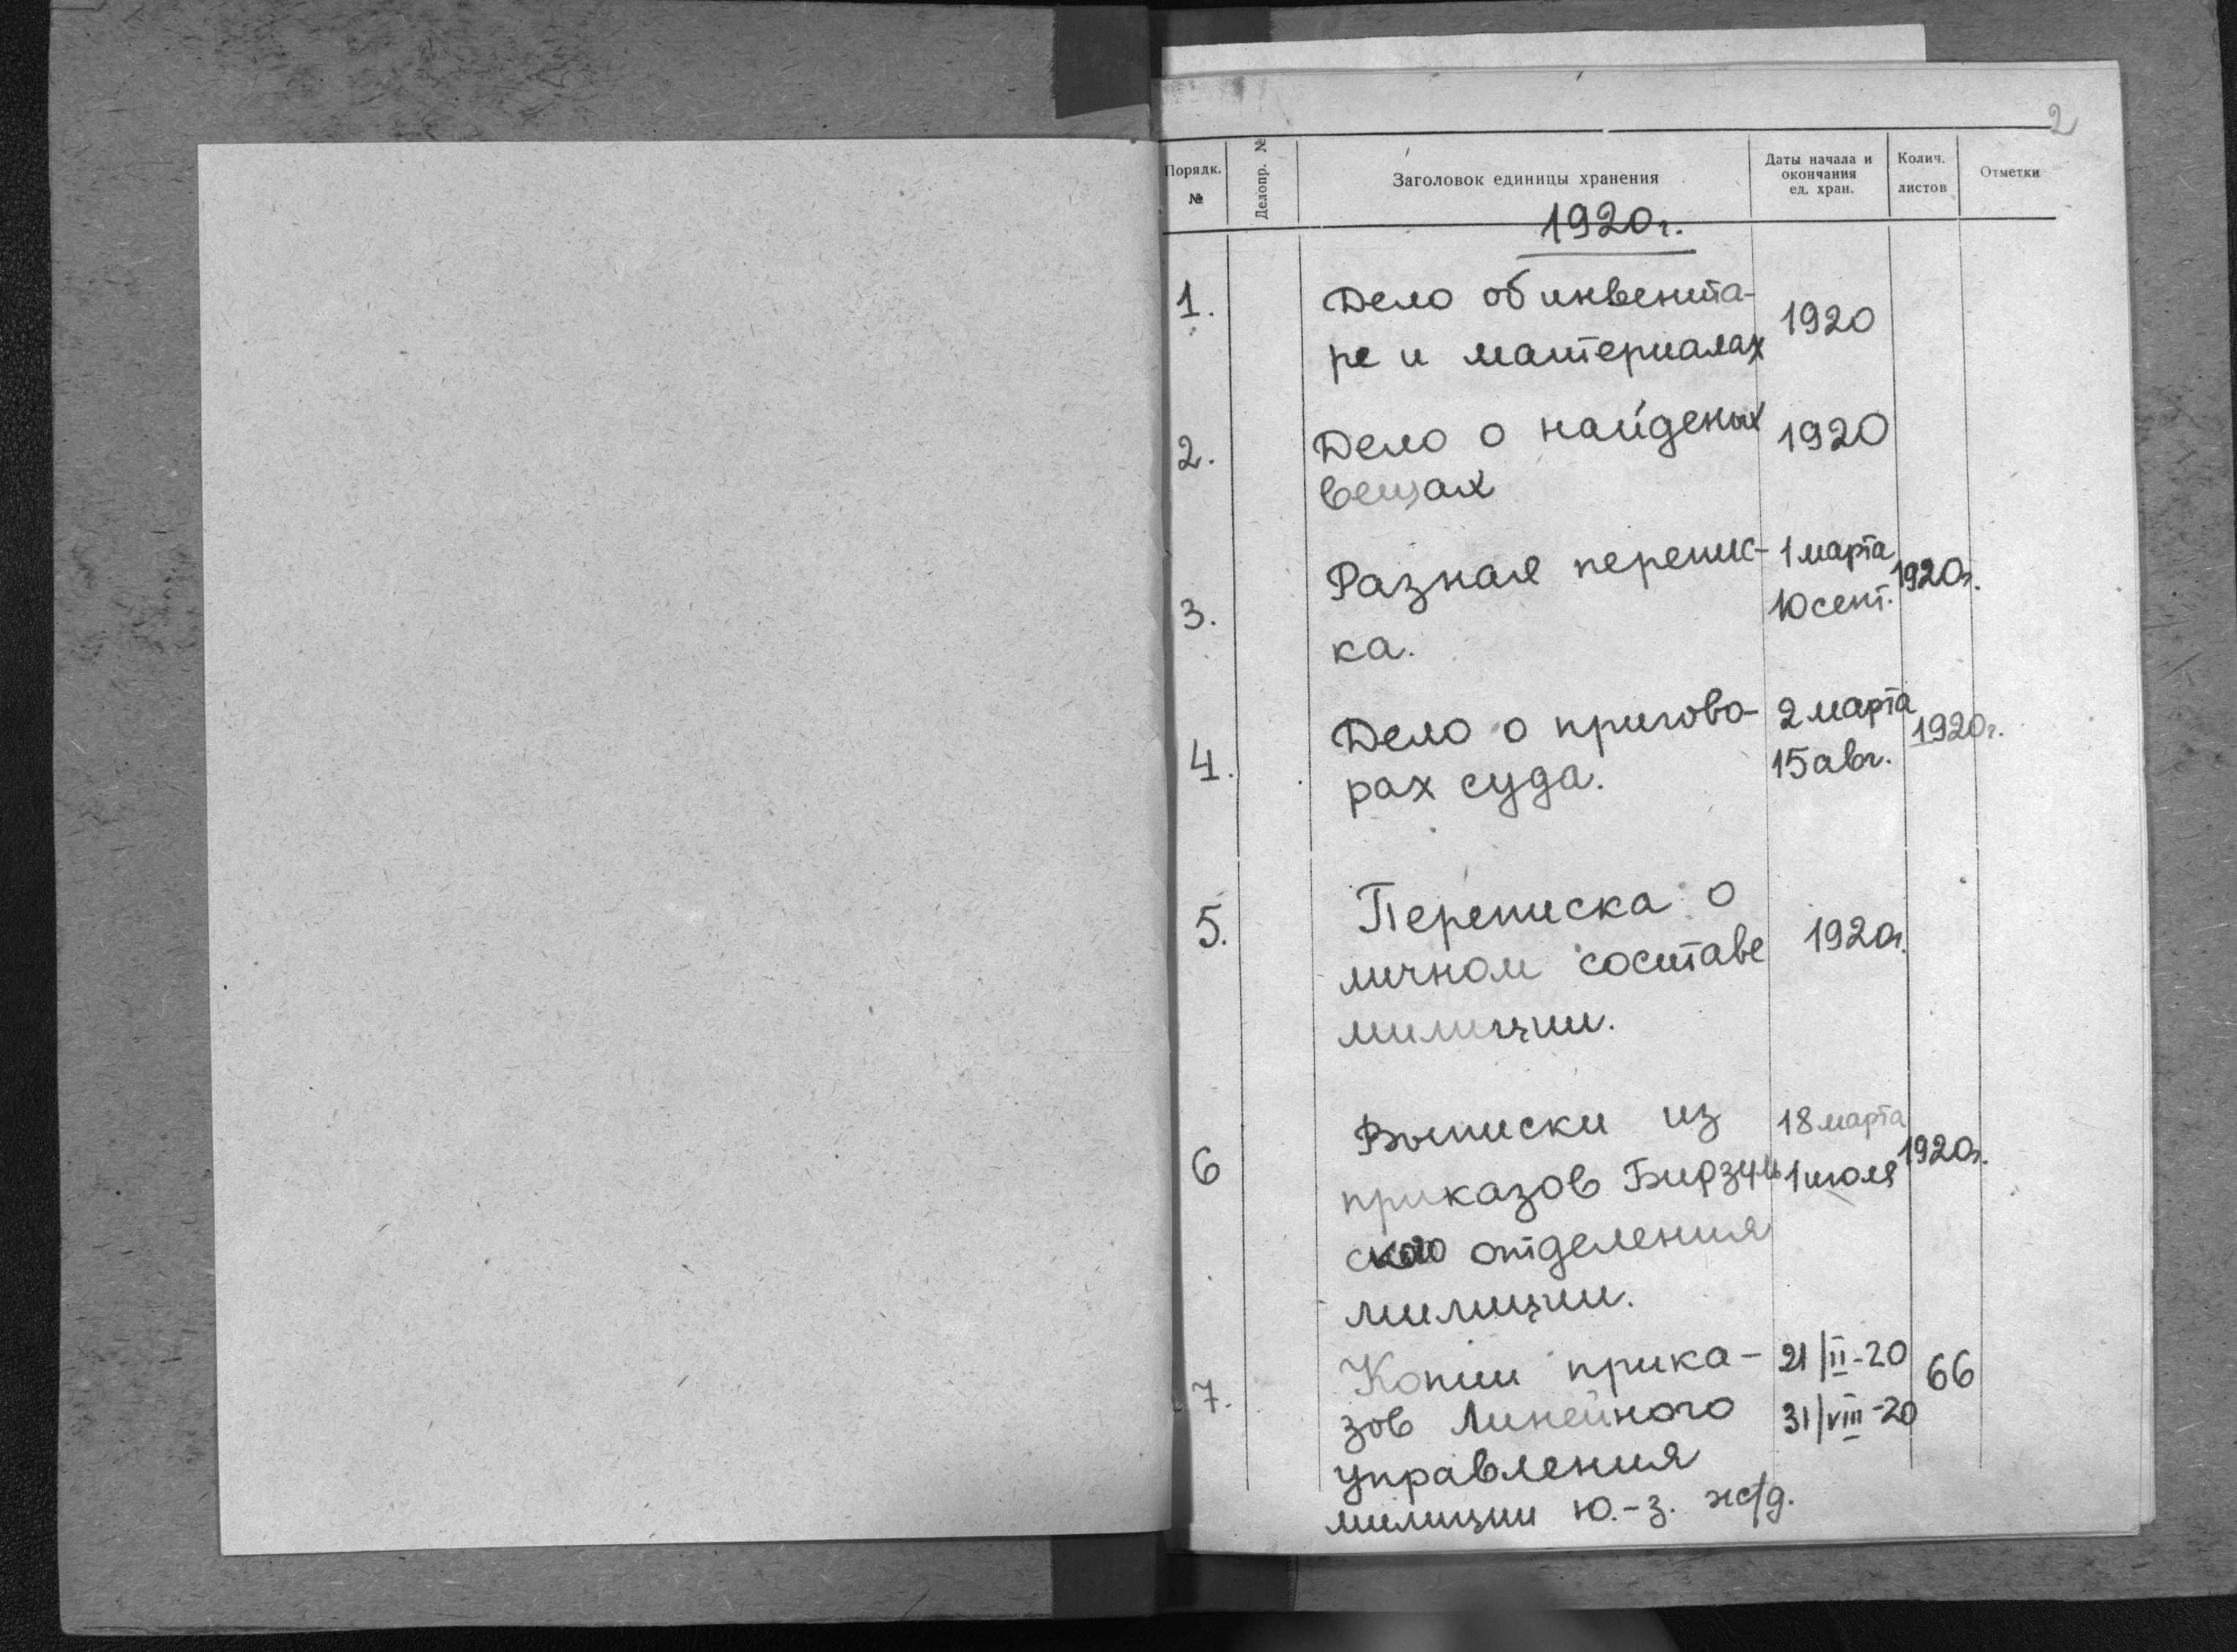 2
Порядк. №
Делопр. №
Заголовок единицы хранения
Даты начала и окончания ед. хран.
Колич. листов
Отметки
1920г.
1.
Дело об инвента-
ре и материалах
1920
2.
Дело о найденых
вещах
1920
3.
Разная перепис-
ка.
1 марта
10 сент.
1920г.
4.
Дело о пригово-
рах суда.
2 марта
15 авг.
1920г.
5.
Переписка о
личном составе
милиции.
1920г.
6
Выписки из
приказов Бирзул
ского отделения
милиции.
18 марта
1 июля
1920г.
7.
Копии прика-
зов Линейного
управления
милиции Ю.-З. ж/д.
21/II-20
31/VIII-20
66